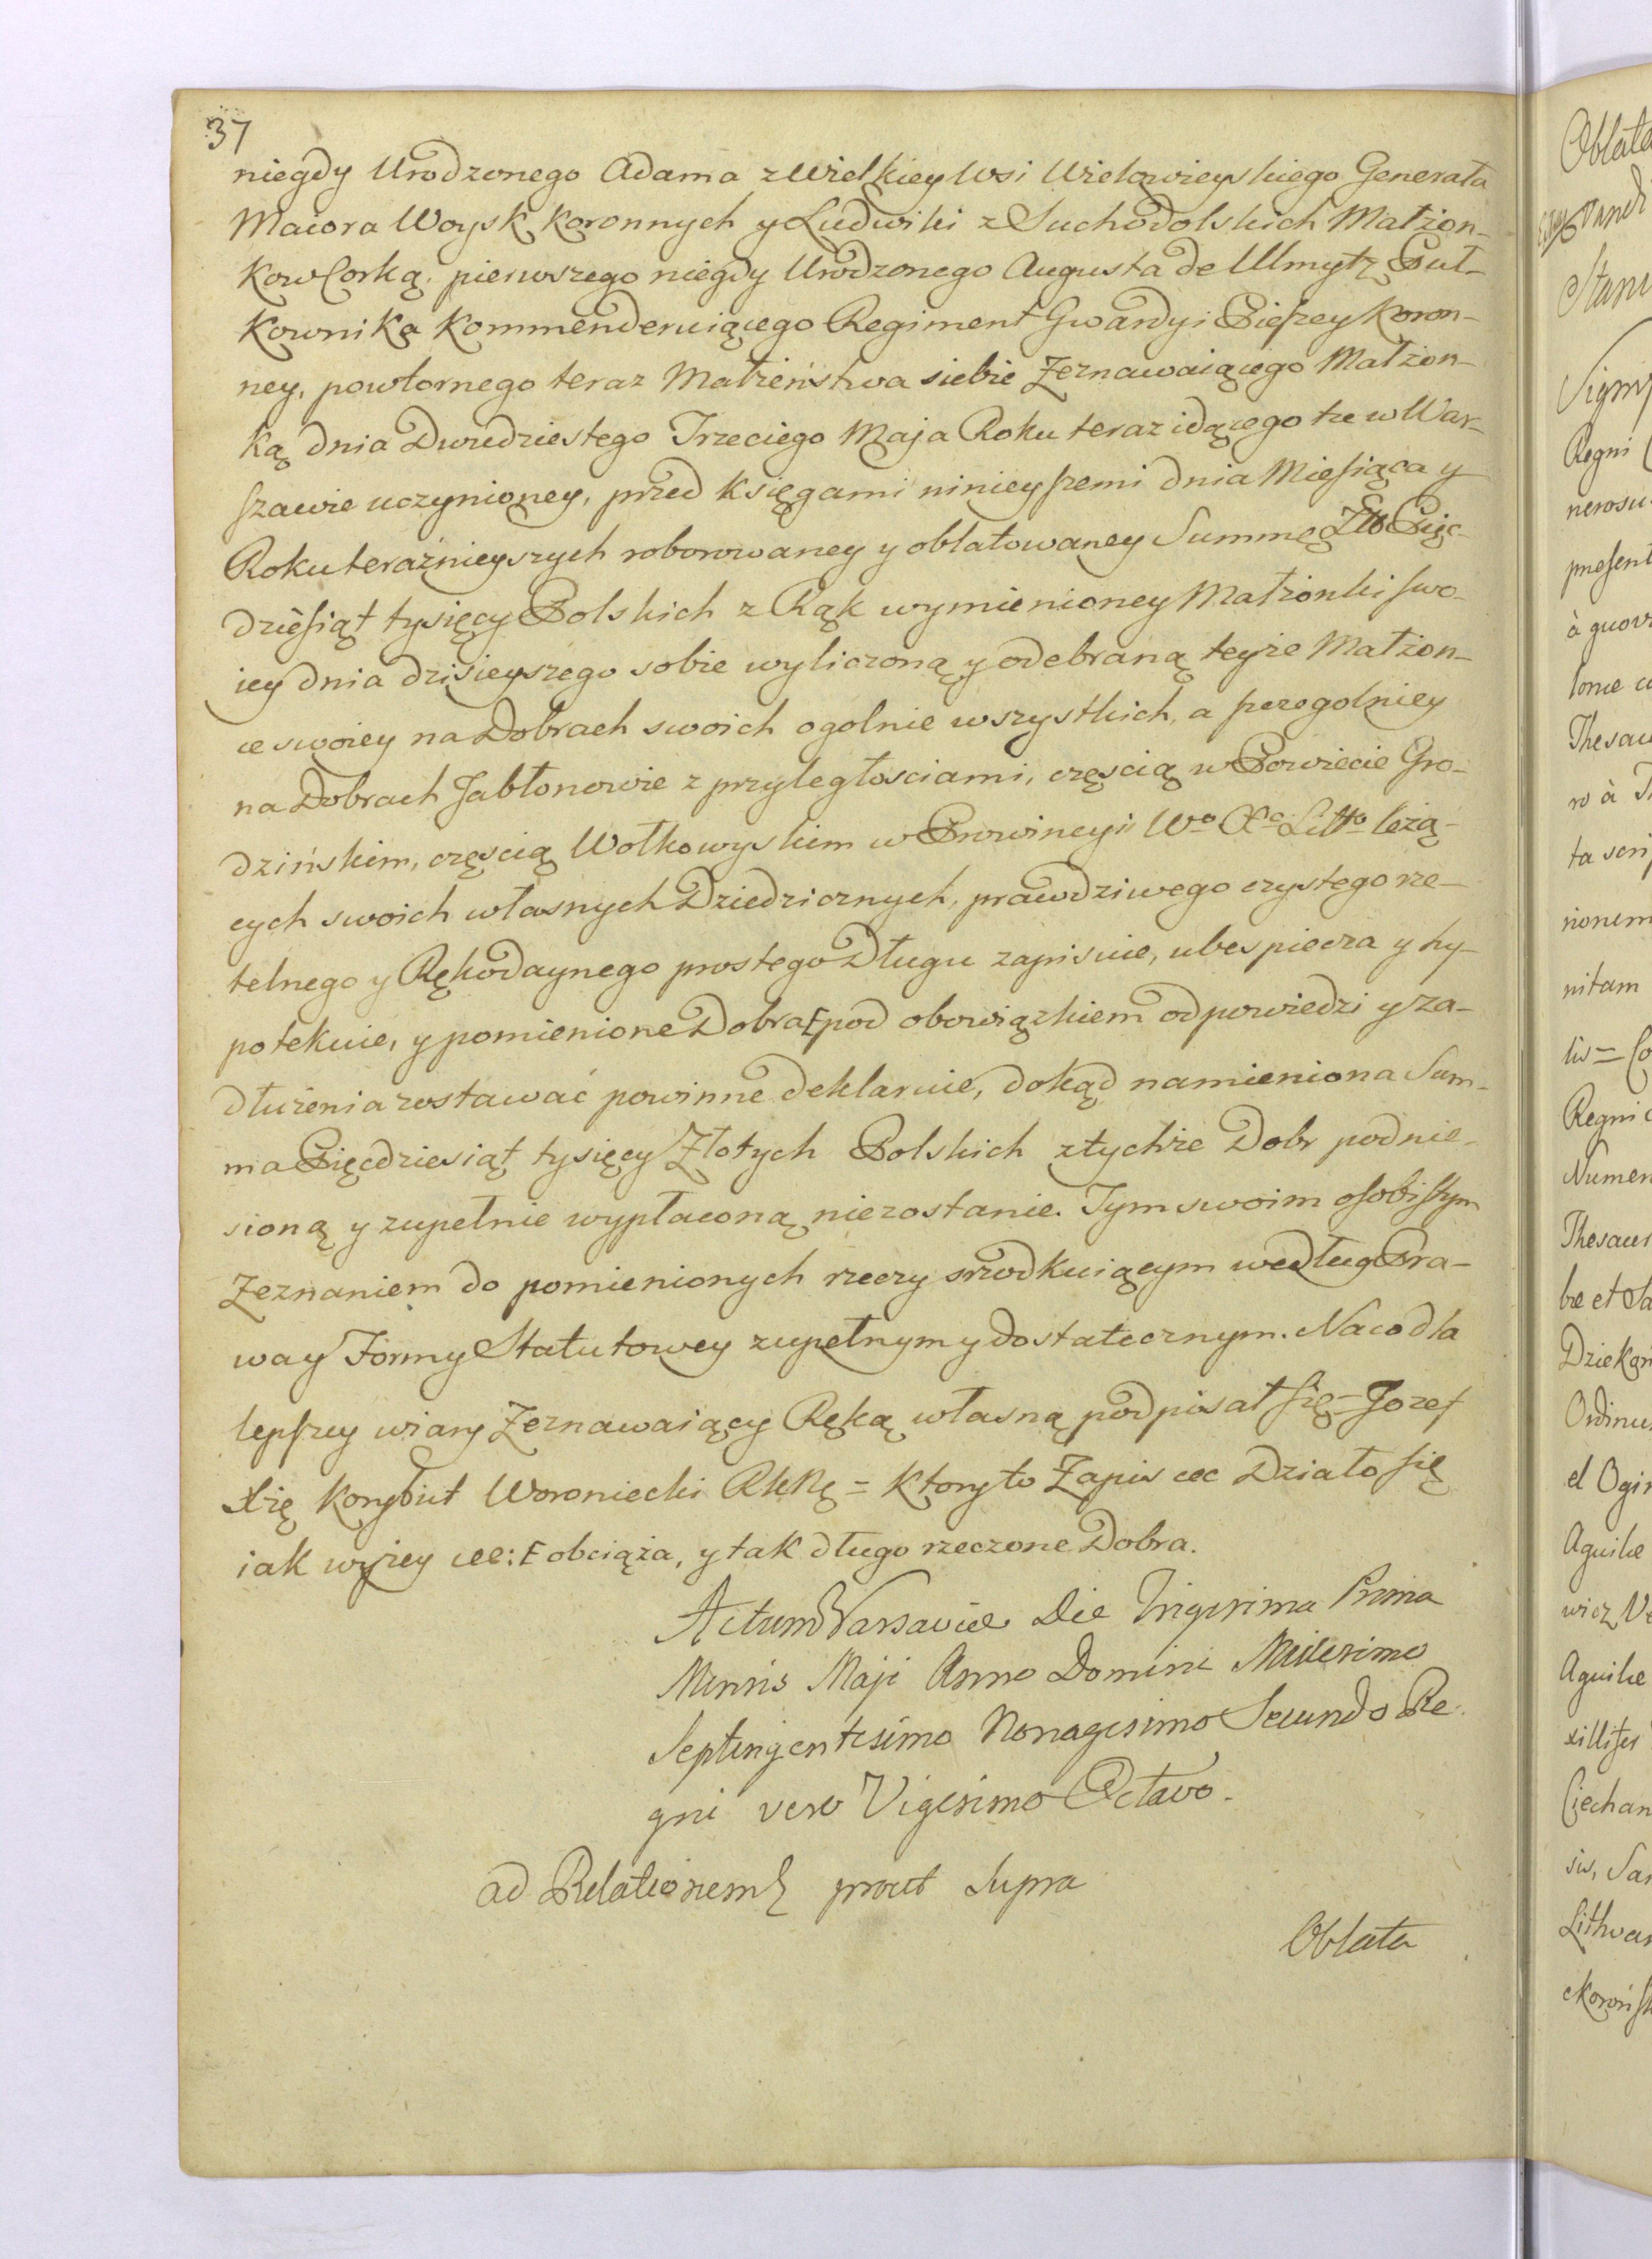 37
niegdy Urodzonego Adama z Wielkiey Wsi Wielowieyskiego Generała
Maiora Woysk Koronnych y Ludwiki z Suchodolskich Małżon-
kow Corką, pierwszego niegdy Urodzonego Augusta de Ulmytz Puł-
kownika Kommenderuiącego Regiment Gwardyi Pieszey Koron-
ney, powtornego teraz Małżeństwa siebie Zeznawaiącego Małżon-
ką dnia Dwudziestego Trzeciego Maja Roku teraz idącego tu w War-
szawie uczynioney, przed księgami ninieyszemi dnia Miesiąca y
Roku teraźnieyszych roborowaney y oblatowaney Summę Złł Pięć-
dziesiąt tysięcy Polskich z Rąk wymienioney Małżonki swo-
iey dnia dzisieyszego sobie wyliczoną y odebraną teyże Małżon-
ce swoiey na Dobrach swoich ogolnie wszystkich, a szczegolniey
na Dobrach Jabłonowie z przyległosciami, częscią w Powiecie Gro-
dzińskim, częscią Wołkowyskim w Prowincyi Wo Xa Litto leżą-
cych swoich własnych Dziedzicznych, prawdziwego czystego rze-
telnego y Rękodaynego prostego Długu zapisuie, ubespiecza y hy-
potekuie, y pomienione Dobra [ pod obowiązkiem odpowiedzi y za-
dłużenia zostawać powinne deklaruie, dokąd namieniona Sum-
ma Pięcdziesiąt tysięcy Złotych Polskich z tychże Dobr podnie-
sioną y zupełnie wypłaconą niezostanie. Tym swoim osobistym
Zeznaniem do pomienionych rzeczy srzodkuiącym według Pra-
wa y Formy Statutowey zupełnym y dostatecznym. Na co dla
lepszey wiary Zeznawaiący Ręką własną podpisał się = Jozef
Xżę Korybut Woroniecki = Ktory to Zapis etc Działo się
iak wyżey etc: [ obciąża, y tak długo rzeczone Dobra.
Actum Varsaviæ Die Trigesima Prima
Mensis Maji Anno Domini Millesimo
Septingentesimo Nonagesimo Secundo Re-
gni vero Vigesimo Octavo.
ad Relationem prout Supra
Oblata
Oblata
Stani
Regni
nerosu
present
Thesau
ta scri
nionem
nitam
Regni
Numer
Thesaur
Dziekań
Ordinu
el Ogi
Aquilæ
wicz
Aquilæ
xillifer
Ciechan
sis, Sa
Lithva